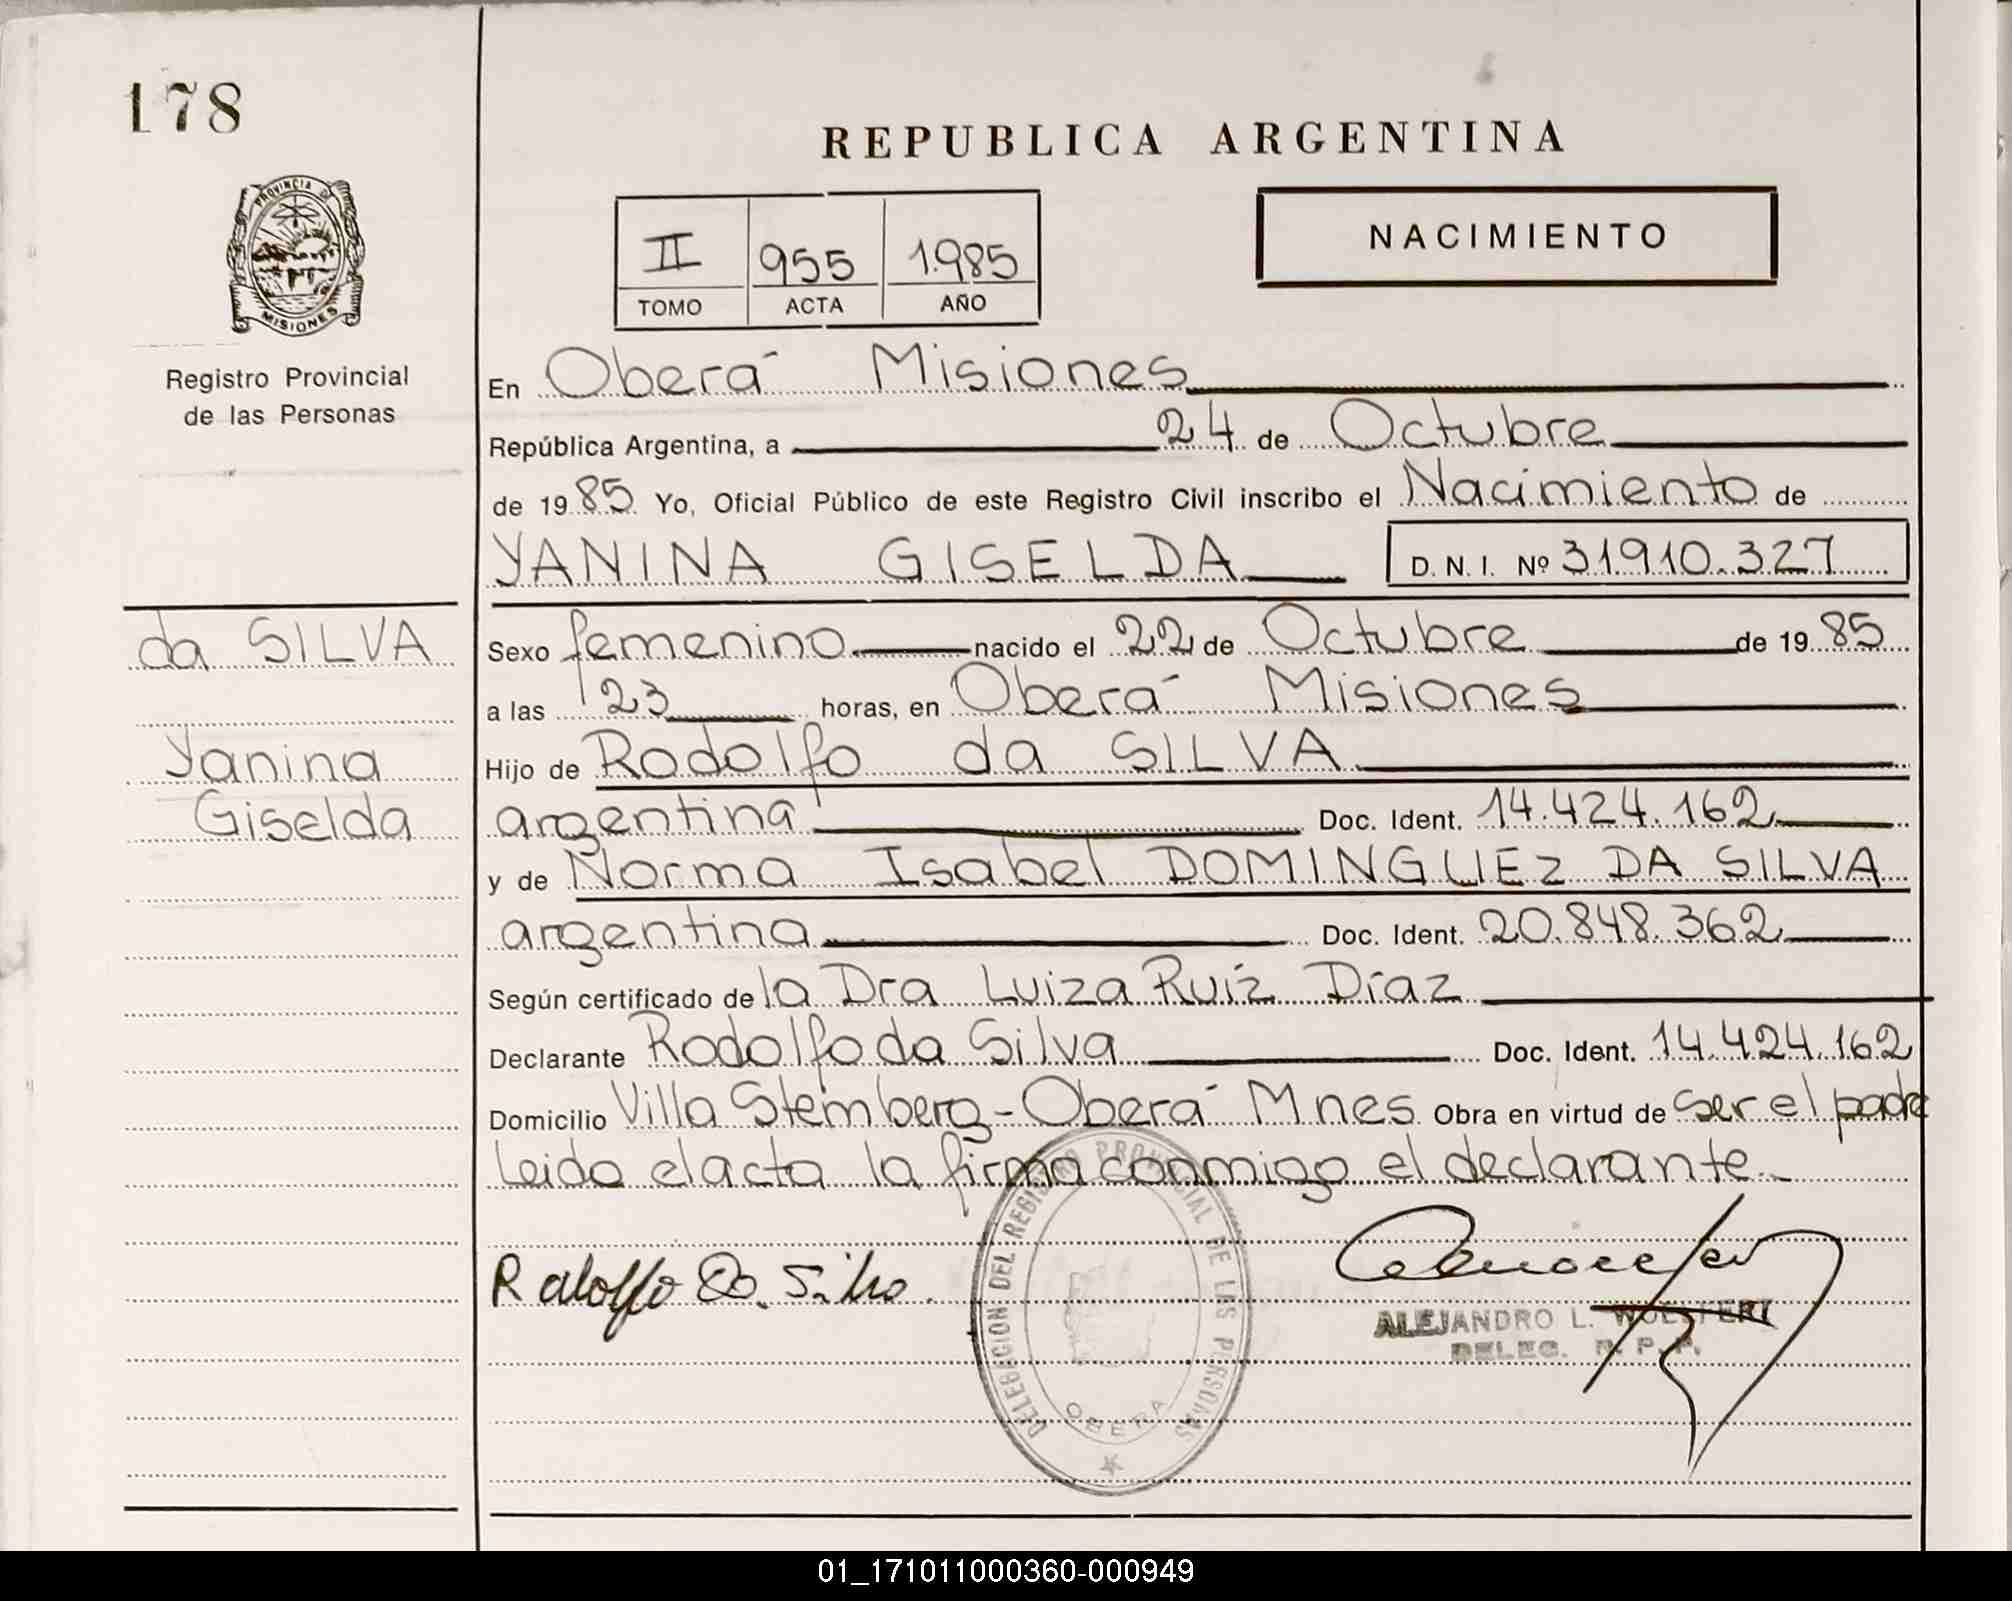 178
REPUBLICA ARGENTINA
PROVINCIA DE
MISIONES
Registro Provincial
de las Personas
II 955 1.985
TOMO ACTA AÑO
NACIMIENTO
En Oberá Misiones
República Argentina, a 24 de Octubre
de 1985 Yo, Oficial Público de este Registro Civil inscribo el Nacimiento de
YANINA GISELDA D. N. I. Nº 31.910.327
da SILVA
Yanina
Giselda
Sexo femenino nacido el 22 de Octubre de 1985
a las 23 horas, en Oberá Misiones
Hijo de Rodolfo da SILVA
argentina Doc. Ident. 14.424.162
y de Norma Isabel DOMINGUEZ DA SILVA
argentina Doc. Ident. 20.848.362
Según certificado de la Dra Luiza Ruiz Diaz
Declarante Rodolfo da Silva Doc. Ident. 14.424.162
Domicilio Villa Stemberg - Oberá Mnes Obra en virtud de ser el padre
Leido el acta la firma conmigo el declarante
Rodolfo Da. Silva.
DELEGACION DEL REGISTRO PROVINCIAL DE LAS PERSONAS
OBERA
ALEJANDRO L.
DELEG. R. P. P.
01_171011000360-000949